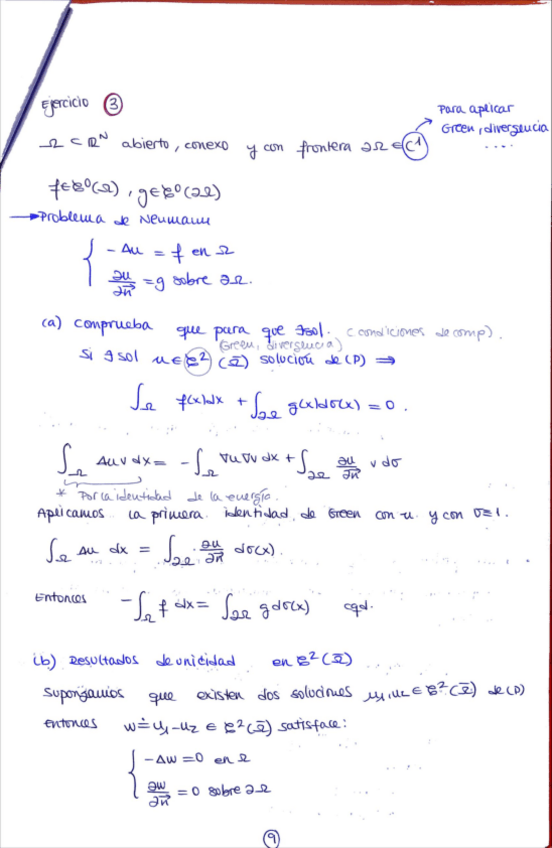 Ejercicio ③
Para aplicar
Green, divergencia
....
Ω ⊂ ℝᴺ abierto, conexo y con frontera ∂Ω ∈ C¹
f ∈ C⁰(Ω), g ∈ C⁰(∂Ω)
→ Problema de Neumann
{ -Δu = f en Ω
∂u/∂n⃗ = g sobre ∂Ω.
(a) Comprueba que para que ∃sol. (condiciones de comp).
(Green, divergencia)
Si ∃ sol u ∈ C² (Ω̄) solución de (P) ⇒
∫_Ω f(x)dx + ∫_∂Ω g(x)dσ(x) = 0.
∫_Ω Δu v dx = - ∫_Ω ∇u ∇v dx + ∫_∂Ω ∂u/∂n⃗ v dσ
* Por la identidad de la energía.
Aplicamos la primera identidad de Green con u y con v≡1.
∫_Ω Δu dx = ∫_∂Ω ∂u/∂n⃗ dσ(x).
Entonces -∫_Ω f dx = ∫_∂Ω g dσ(x) cqd.
(b) Resultados de unicidad en C²(Ω̄)
Supongamos que existen dos soluciones u₁, u₂ ∈ C²(Ω̄) de (P)
entonces w ≐ u₁ - u₂ ∈ C²(Ω̄) satisface:
{ -Δw = 0 en Ω
∂w/∂n⃗ = 0 sobre ∂Ω
⑨